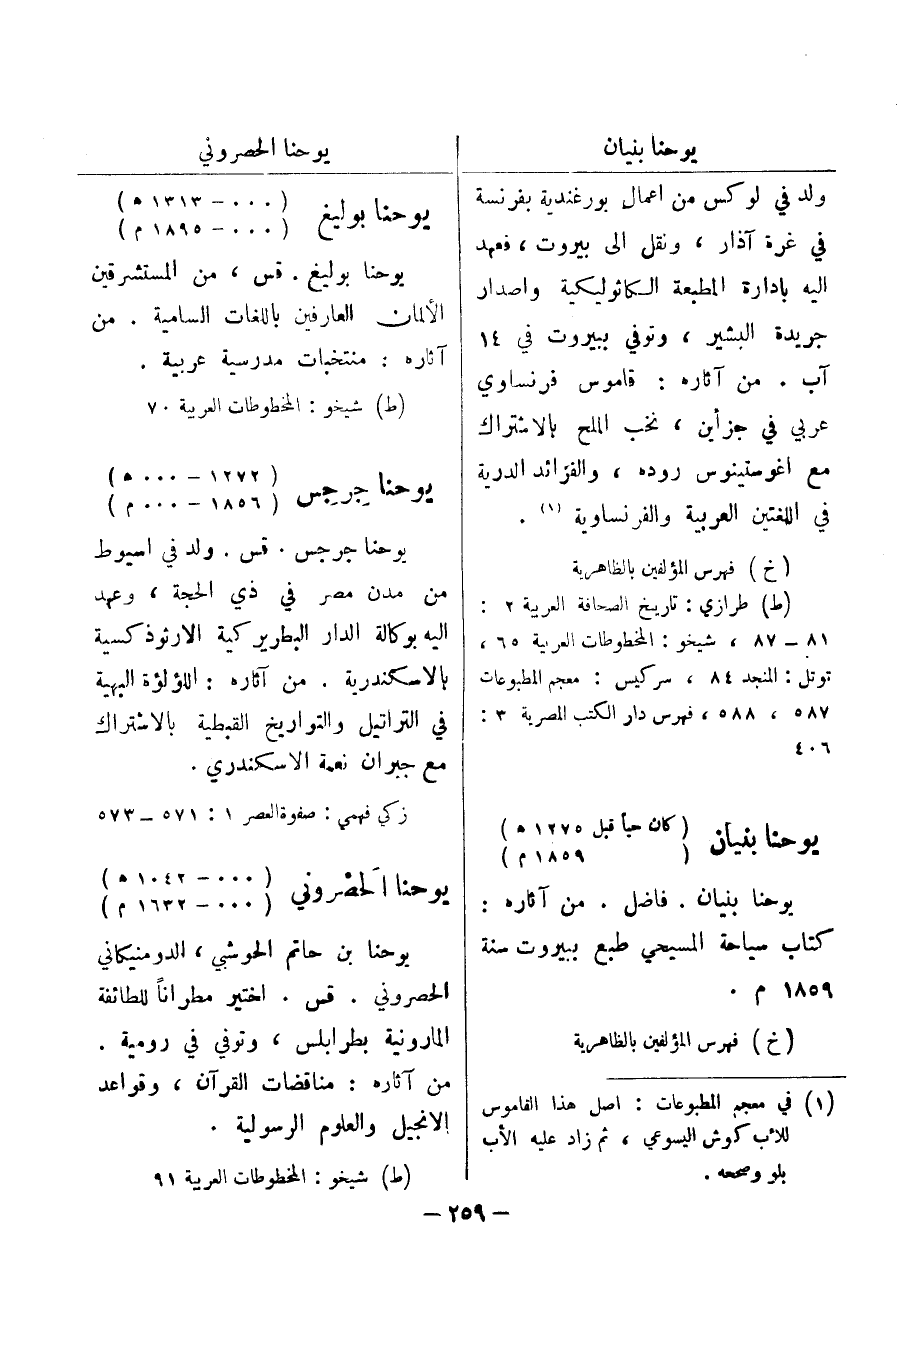 يوحنا بنيان
ولد في لوكس من اعمال بورغندية بفرنسة
في غرة آذار ، ونقل الى بيروت ، فعهد
اليه بادارة المطبعة الكاثوليكية واصدار
جريدة البشير ، وتوفي ببيروت في ١٤
آب . من آثاره : قاموس فرنساوي
عربي في جزأين ، نخب الملح بالاشتراك
مع اغوستينوس روده ، والفرائد الدرية
في اللغتين العربية والفرنساوية (١) .
(خ) فهرس المؤلفين بالظاهرية
(ط) طرازي : تاريخ الصحافة العربية ٢ :
٨١ – ٨٧ ، شيخو : المخطوطات العربية ٦٥ ،
توتل : المنجد ٨٤ ، سركيس : معجم المطبوعات
٥٨٧ ، ٥٨٨ ، فهرس دار الكتب المصرية ٣ :
٤٠٦
يوحنا بنيان (كان حياً قبل ١٢٧٥ هـ)
( ١٨٥٩ م)
يوحنا بنيان . فاضل . من آثاره :
كتاب سياحة المسيحي طبع ببيروت سنة
١٨٥٩ م .
(خ) فهرس المؤلفين بالظاهرية
(١) في معجم المطبوعات : اصل هذا القاموس
للاب كوش اليسوعي ، ثم زاد عليه الأب
بلو وصححه .
يوحنا الحصروني
يوحنا بوليغ (٠٠٠ – ١٣١٣ هـ)
(٠٠٠ – ١٨٩٥ م)
يوحنا بوليغ . قس ، من المستشرقين
الألمان العارفين باللغات السامية . من
آثاره : منتخبات مدرسية عربية .
(ط) شيخو : المخطوطات العربية ٧٠
يوحنا جرجس (١٢٧٢ – ٠٠٠ هـ)
(١٨٥٦ – ٠٠٠ م)
يوحنا جرجس . قس . ولد في اسيوط
من مدن مصر في ذي الحجة ، وعهد
اليه بوكالة الدار البطريركية الارثوذكسية
بالاسكندرية . من آثاره : اللؤلؤة البهية
في التراتيل والتواريخ القبطية بالاشتراك
مع جبران نعمة الاسكندري .
زكي فهمي : صفوة العصر ١ : ٥٧١ – ٥٧٣
يوحنا الحصروني (٠٠٠ – ١٠٤٢ هـ)
(٠٠٠ – ١٦٣٢ م)
يوحنا بن حاتم الحوشبي ، الدومنيكاني
الحصروني . قس . اختير مطراناً للطائفة
المارونية بطرابلس ، وتوفي في رومية .
من آثاره : مناقضات القرآن ، وقواعد
الانجيل والعلوم الرسولية .
(ط) شيخو : المخطوطات العربية ٩١
– ٢٥٩ –